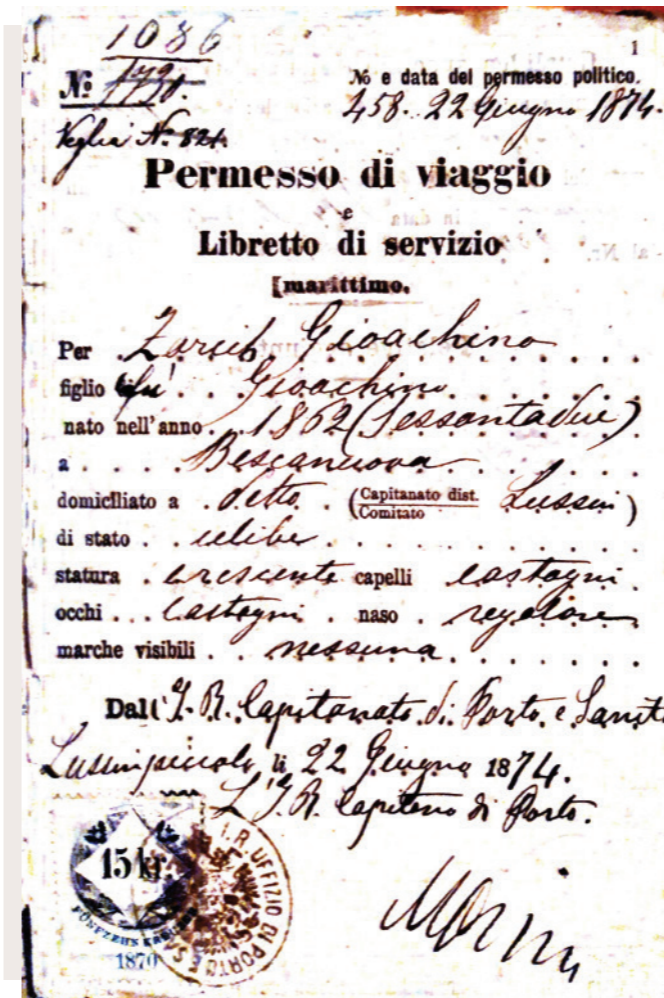 1086
1
No
No e data del permesso politico.
458. 22 Giugno 1874.
Veglia No. 821.
Permesso di viaggio
e
Libretto di servizio
marittimo.
Per Zarich Gioachino
figlio fu Gioachino
nato nell'anno 1862 (Sessantadue)
a Bescanuova
domiciliato a detto (Capitanato dist. Lussin)
Comitato
di stato celibe
statura crescente capelli castagni
occhi castagni naso regolare
marche visibili nessuna
Dall' I. R. Capitanato di Porto e Sanità
Lussinpiccolo li 22 Giugno 1874.
L'I. R. Capitano di Porto.
15 kr.
FÜNFZEHN KREUZER
1870
I. R. UFFIZIO DI PORTO E SA